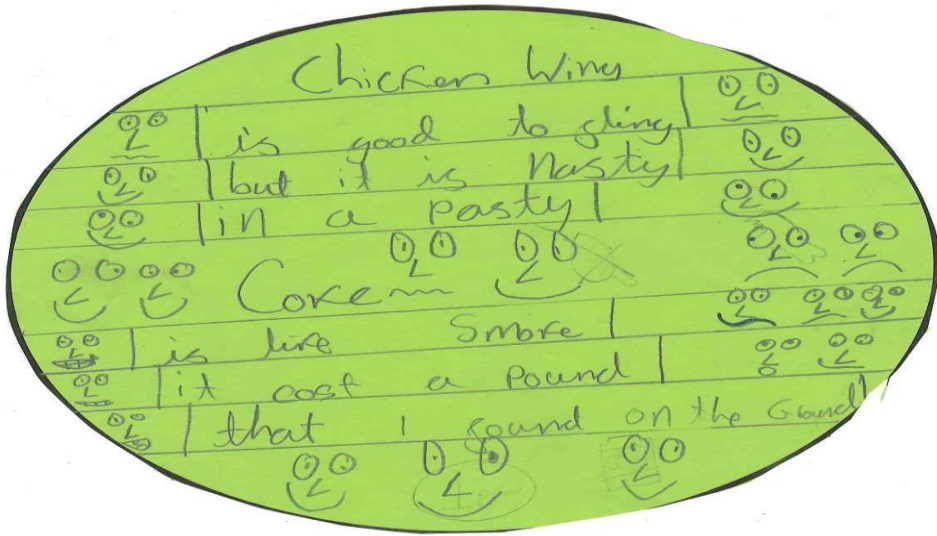 Chicken Wing
is good to gling
but it is Nasty
in a Pasty
Coke
is like Smoke
it cost a Pound
that I found on the Ground